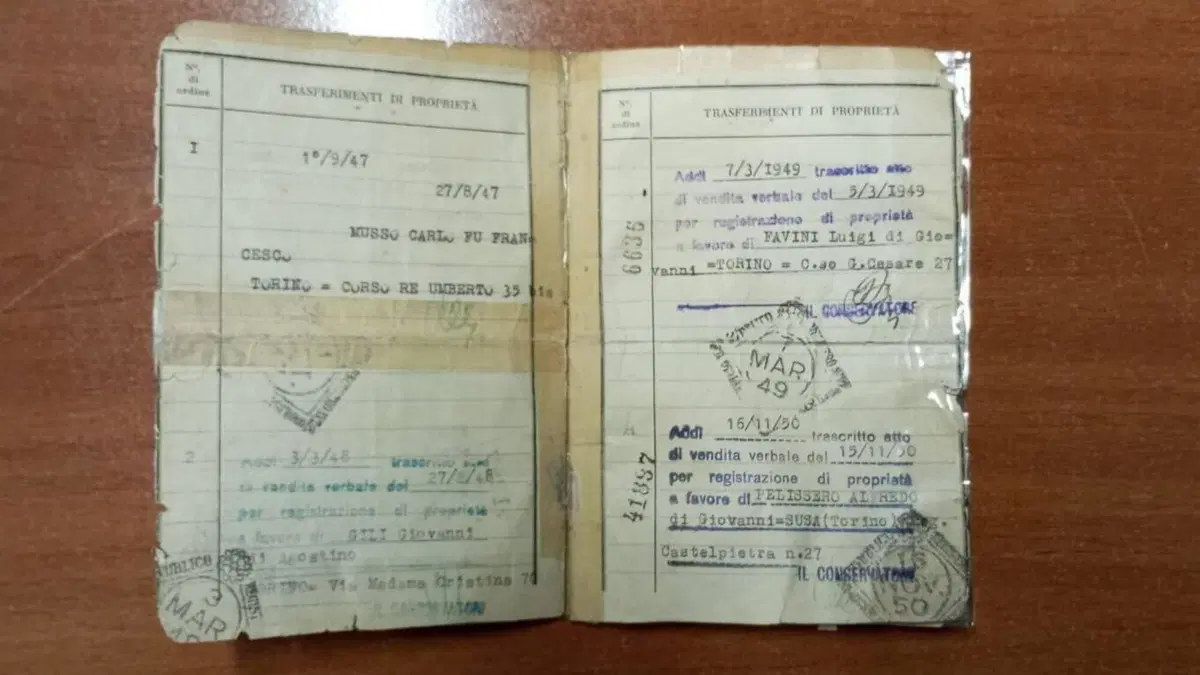 N°.
di
ordine
TRASFERIMENTI DI PROPRIETÀ
I
1°/9/47
27/8/47
MUSSO CARLO FU FRAN=
CESCO
TORINO = CORSO RE UMBERTO 35 bis
2
Addì 3/3/48 trascritto atto
di vendita verbale del 27/2/48
per registrazione di proprietà
a favore di GILI Giovanni
di Agostino
TORINO= Via Madama Cristina 70
IL CONSERVATORE
PUBLICO
3
MAR
N°.
di
ordine
TRASFERIMENTI DI PROPRIETÀ
Addì 7/3/1949 trascritto atto
di vendita verbale del 5/3/1949
per registrazione di proprietà
a favore di FAVINI Luigi di Gio=
vanni =TORINO = C.so G.Cesare 27
6635
IL CONSERVATORE
7
MAR
49
Addì 16/11/50 trascritto atto
di vendita verbale del 15/11/50
per registrazione di proprietà
a favore di PELISSERO ALFREDO
di Giovanni=SUSA(Torino)
Castelpietra n.27
41887
IL CONSERVATORE
NOV
50